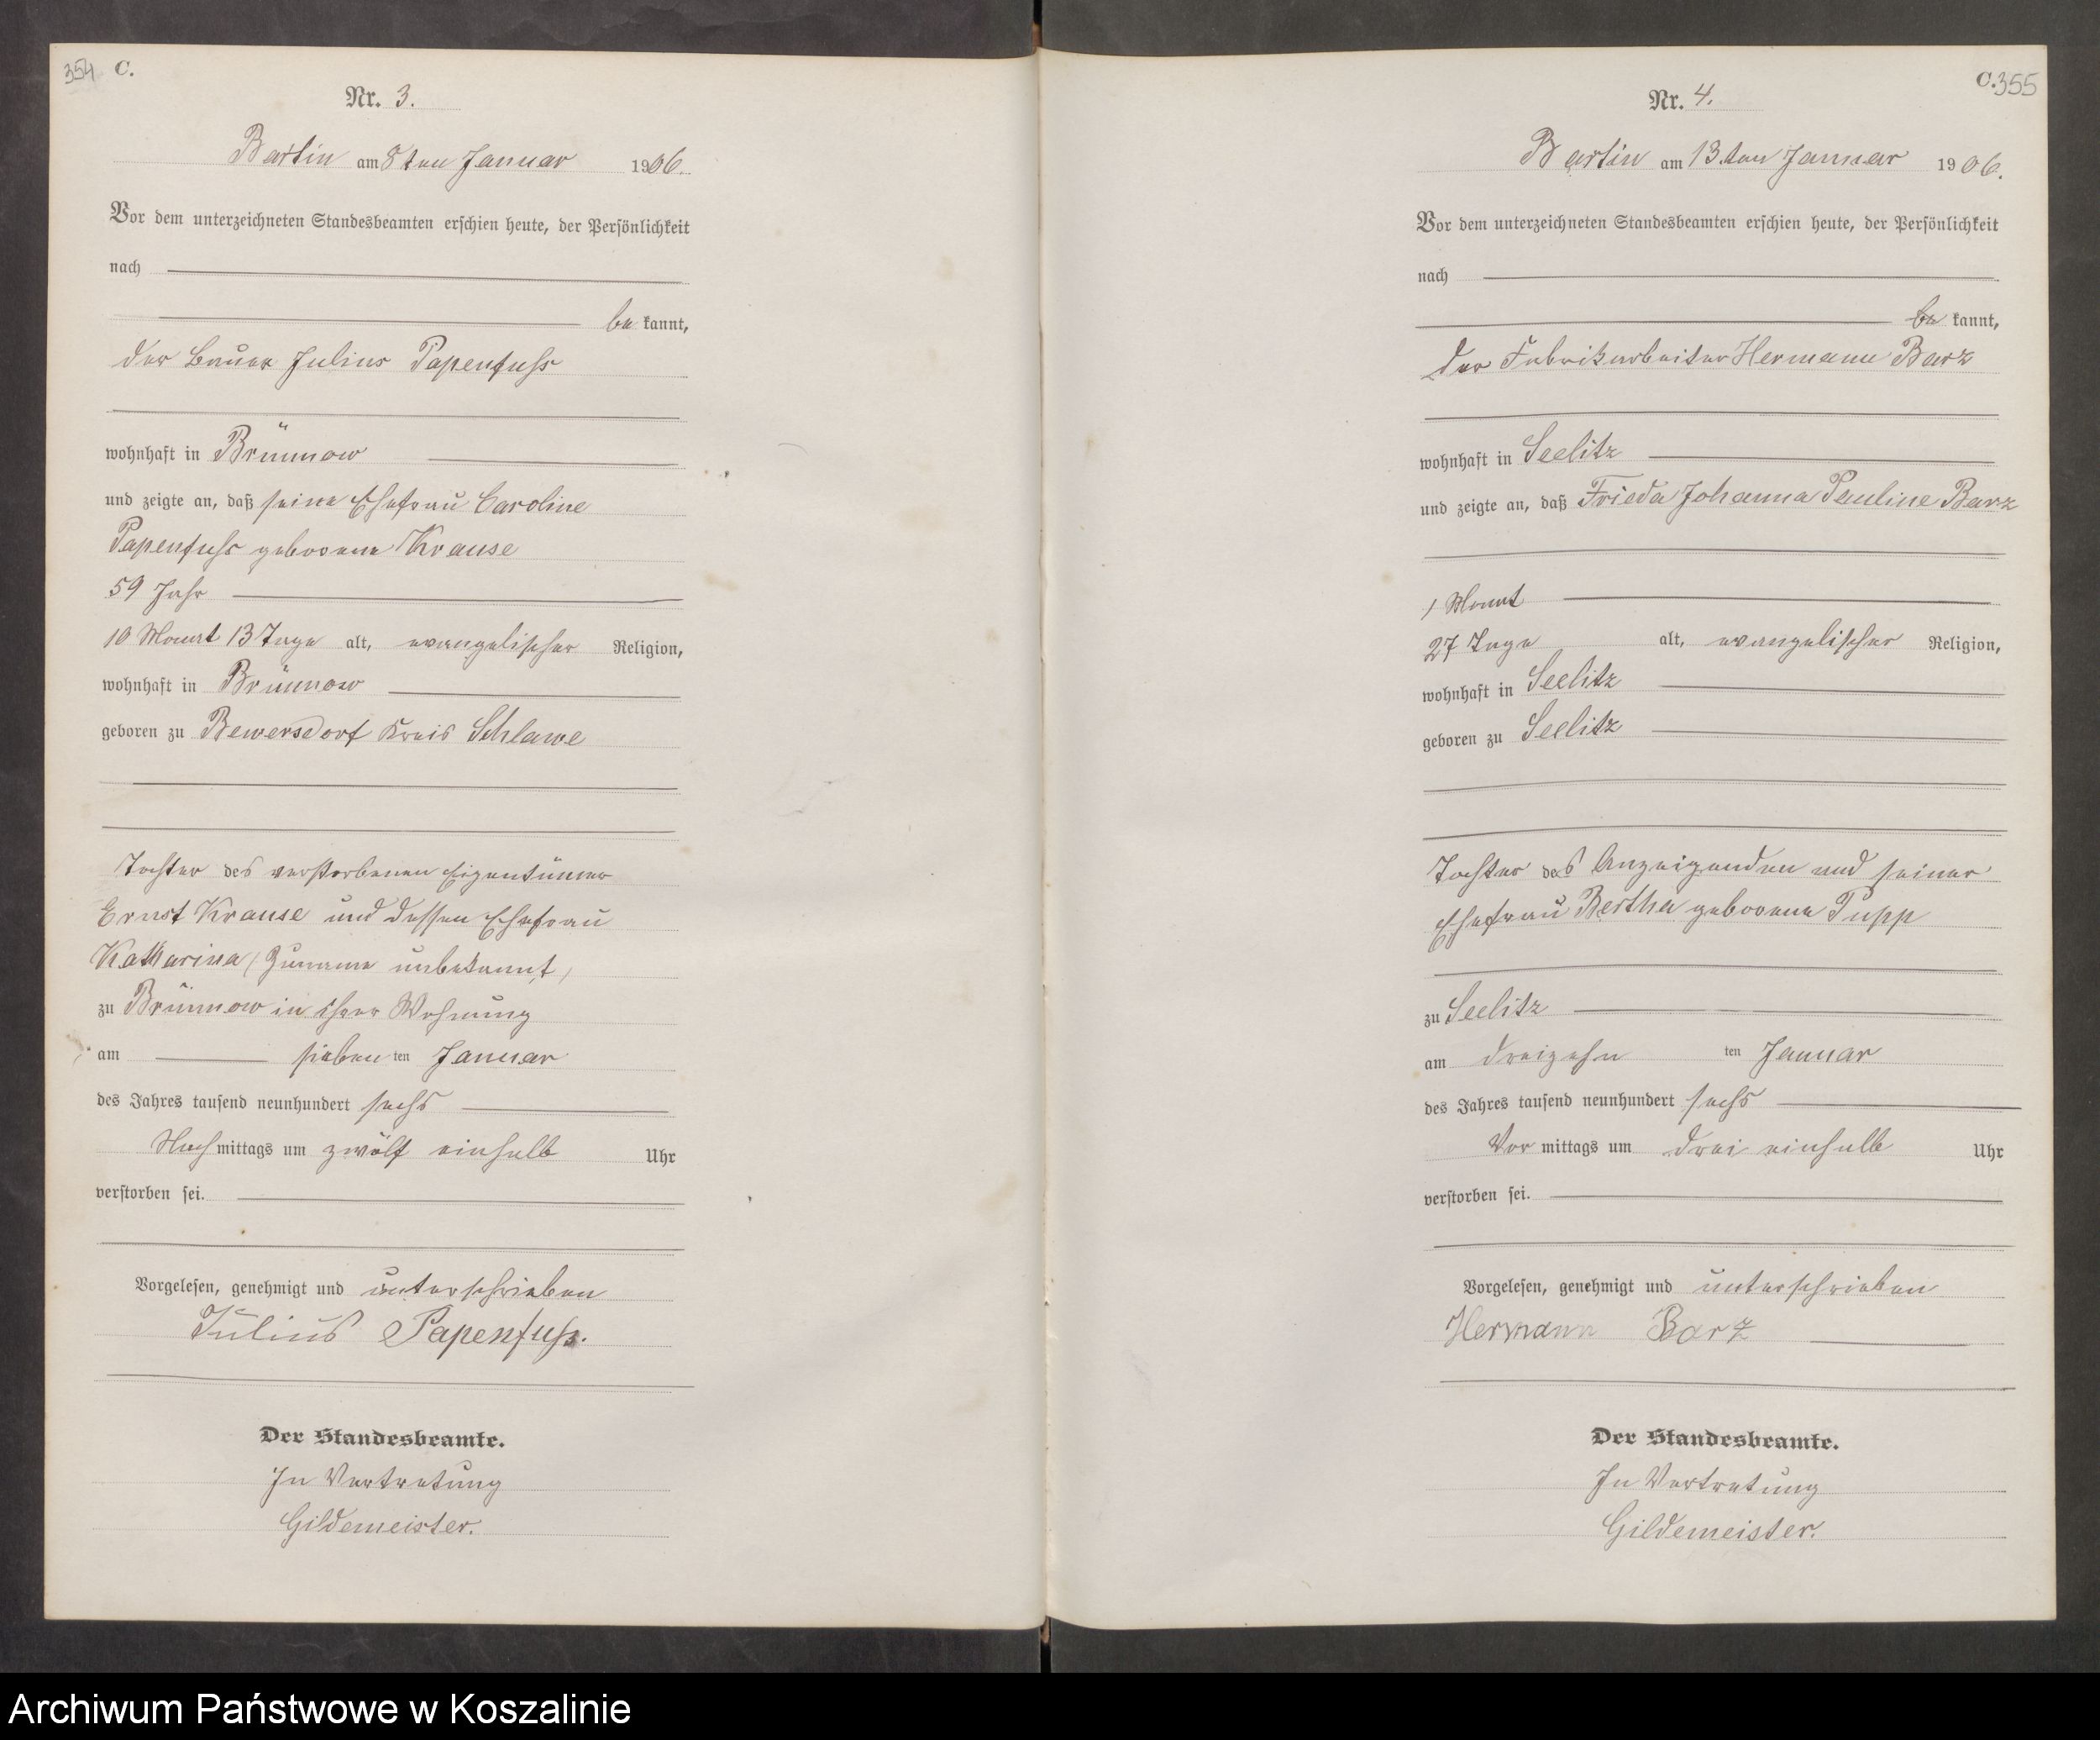 354 C.
Nr. 3.
Bartin am 8ten Januar 1906.
Vor dem unterzeichneten Standesbeamten erschien heute, der Persönlichkeit
nach
be kannt,
der Bauer Julius Papenfuss
wohnhaft in Brünnow
und zeigte an, daß seine Ehefrau Caroline
Papenfuss geborene Krause
59 Jahr
10 Monat 13 Tage alt, evangelischer Religion,
wohnhaft in Brünnow
geboren zu Bewersdorf Kreis Schlawe
Tochter des verstorbenen Eigentümer
Ernst Krause und dessen Ehefrau
Katharina (Zuname unbekannt)
zu Brünnow in ihrer Wohnung
am sieben ten Januar
des Jahres tausend neunhundert sechs
Nach mittags um zwölf einhalb Uhr
verstorben sei.
Vorgelesen, genehmigt und unterschrieben
Julius Papenfuss.
Der Standesbeamte.
In Vertretung
Gildemeister.
C. 355
Nr. 4.
Bartin am 13.ten Januar 1906.
Vor dem unterzeichneten Standesbeamten erschien heute, der Persönlichkeit
nach
be kannt,
der Fabrikarbeiter Hermann Barz
wohnhaft in Seelitz
und zeigte an, daß Frieda Johanna Pauline Barz
1 Monat
27 Tage alt, evangelischer Religion,
wohnhaft in Seelitz
geboren zu Seelitz
Tochter des Anzeigenden und seiner
Ehefrau Bertha geborene Pupp
zu Seelitz
am dreizehn ten Januar
des Jahres tausend neunhundert sechs
Vor mittags um drei einhalb Uhr
verstorben sei.
Vorgelesen, genehmigt und unterschrieben
Hermann Barz
Der Standesbeamte.
In Vertretung
Gildemeister.
Archiwum Państwowe w Koszalinie